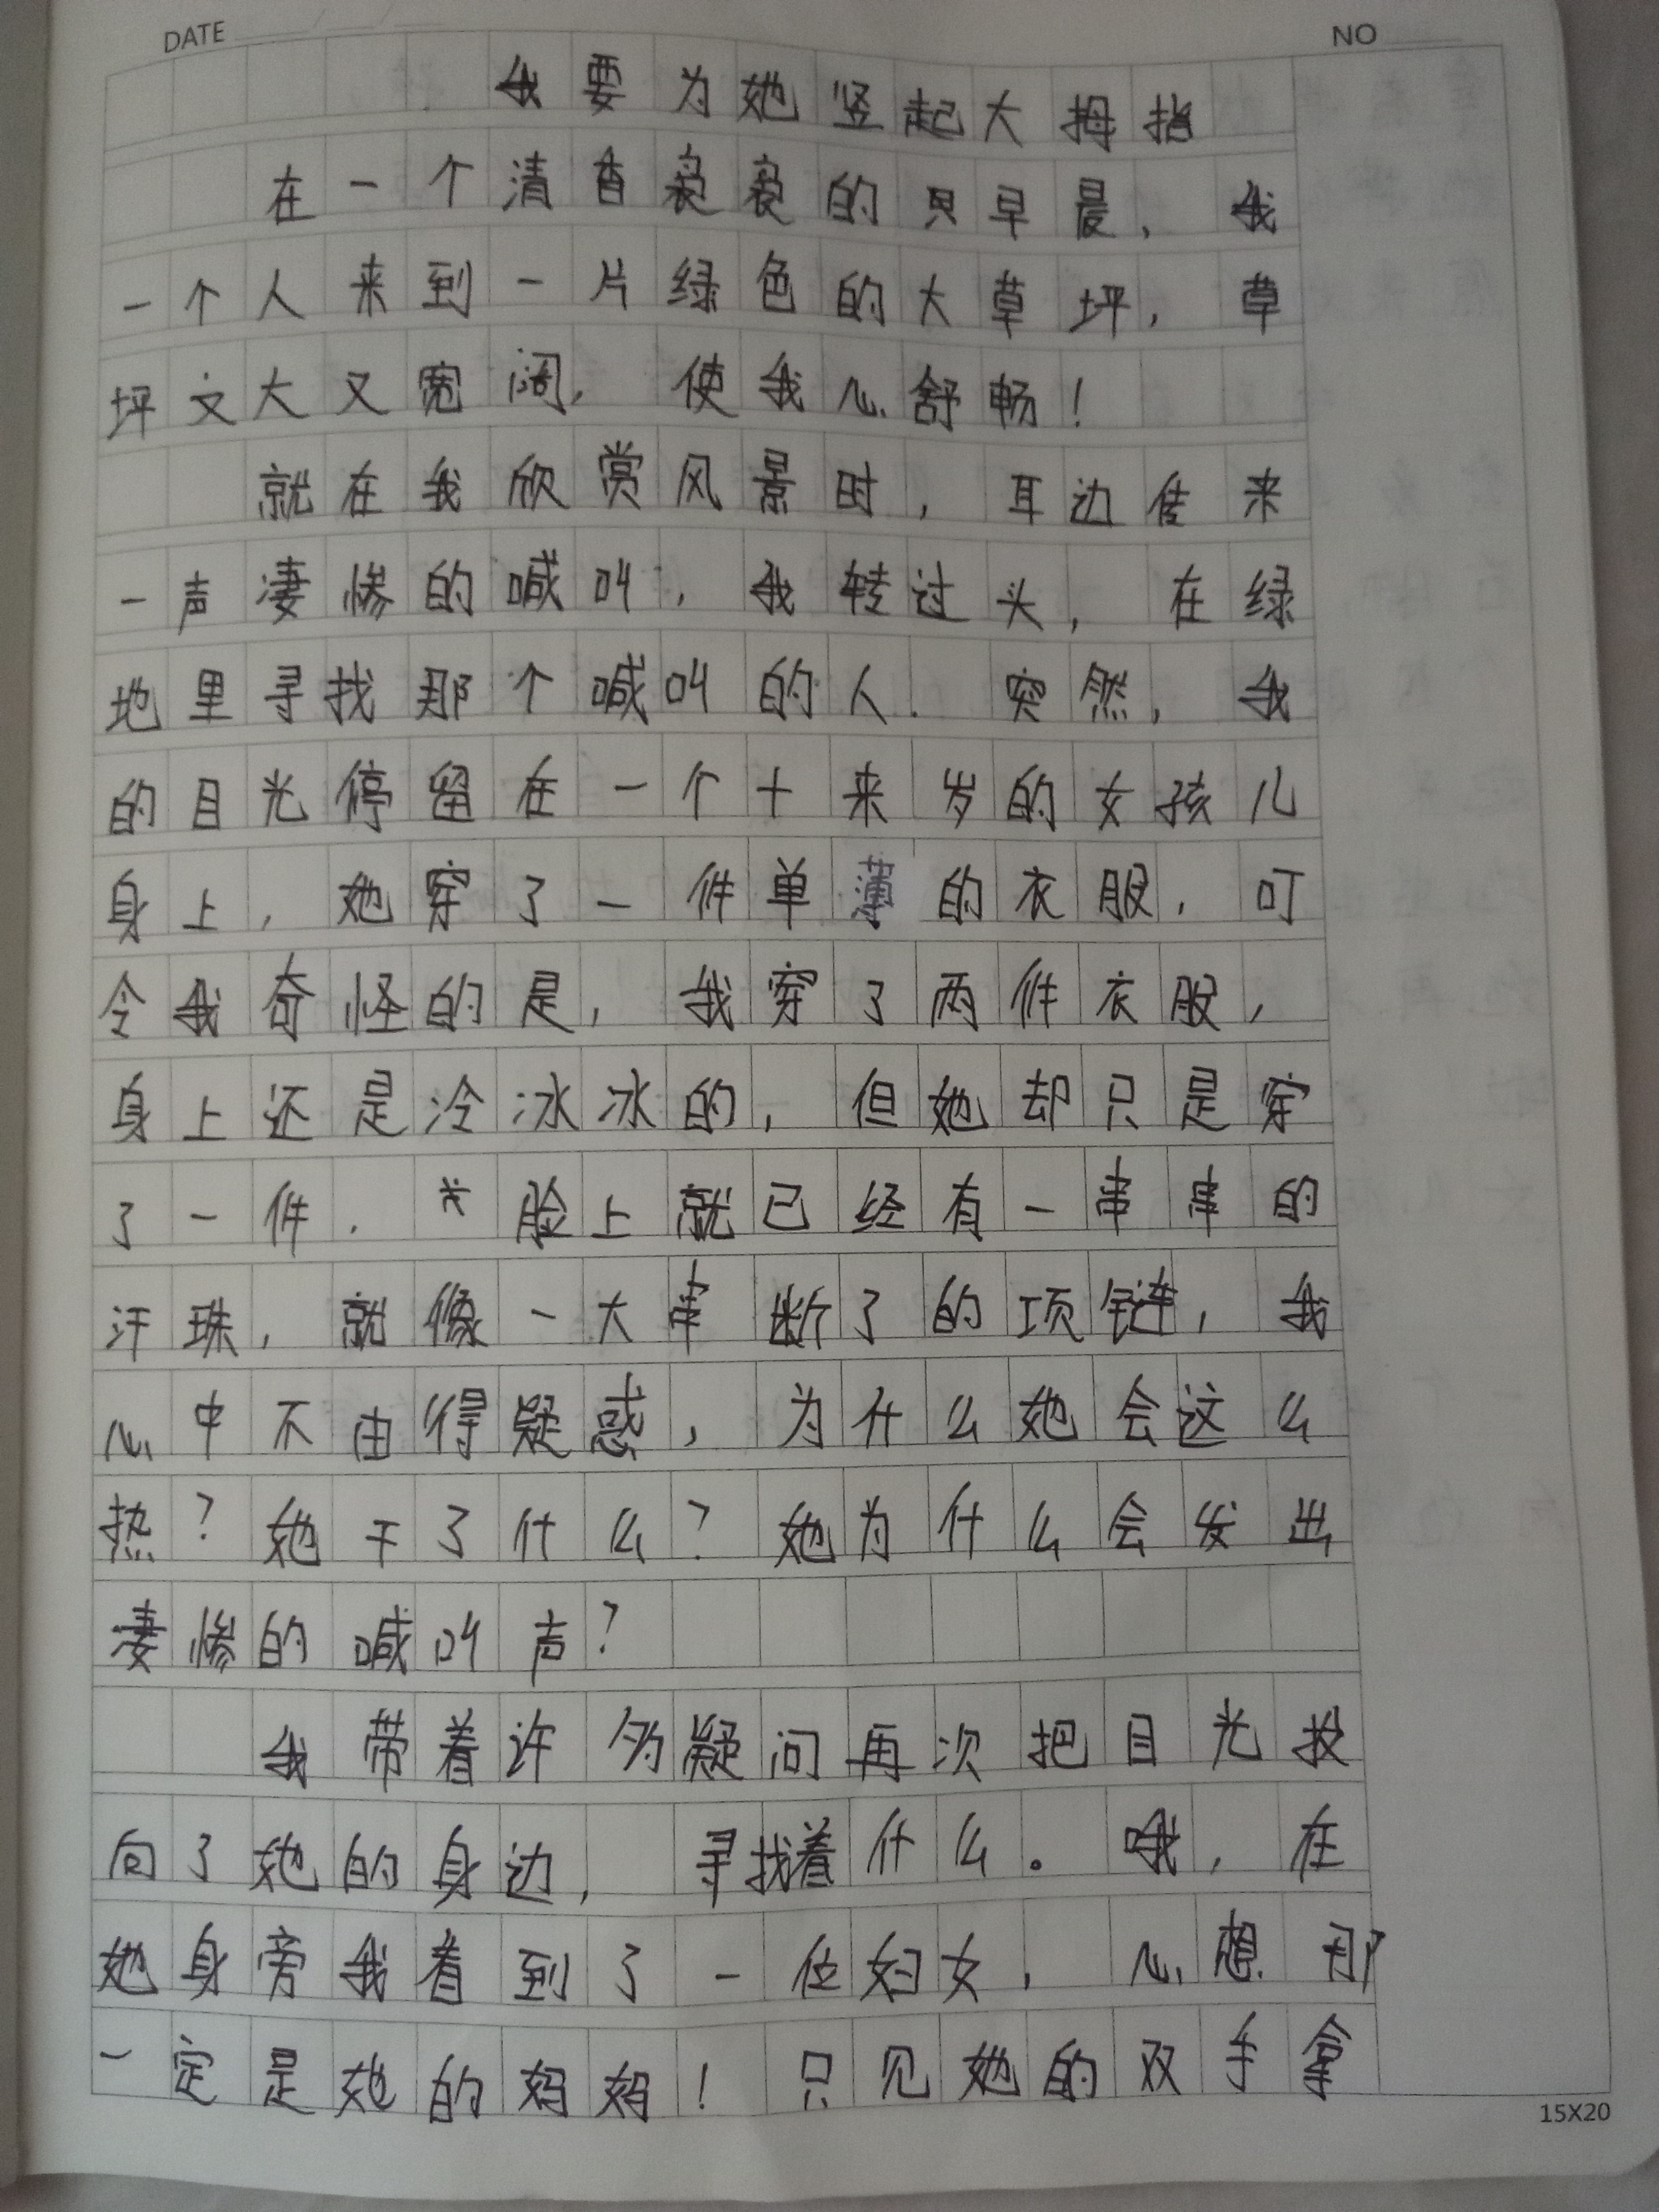 DATE
NO
我要为她竖起大拇指
在一个清香袅袅的早晨，我
一个人来到一片绿色的大草坪，草
坪又大又宽阔，使我心舒畅！
就在我欣赏风景时，耳边传来
一声凄惨的喊叫，我转过头，在绿
地里寻找那个喊叫的人．突然，我
的目光停留在一个十来岁的女孩儿
身上，她穿了一件单薄的衣服，可
令我奇怪的是，我穿了两件衣服，
身上还是冷冰冰的，但她却只是穿
了一件．脸上就已经有一串串的
汗珠，就像一大串断了的项链，我
心中不由得疑惑，为什么她会这么
热？她干了什么？她为什么会发出
凄惨的喊叫声？
我带着许多疑问再次把目光投
向了她的身边，寻找着什么。哦，在
她身旁我看到了一位妇女，心想那
一定是她的妈妈！只见她的双手拿
15X20